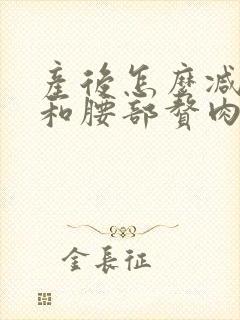 產後怎麼減
和腰部贅肉
金長征